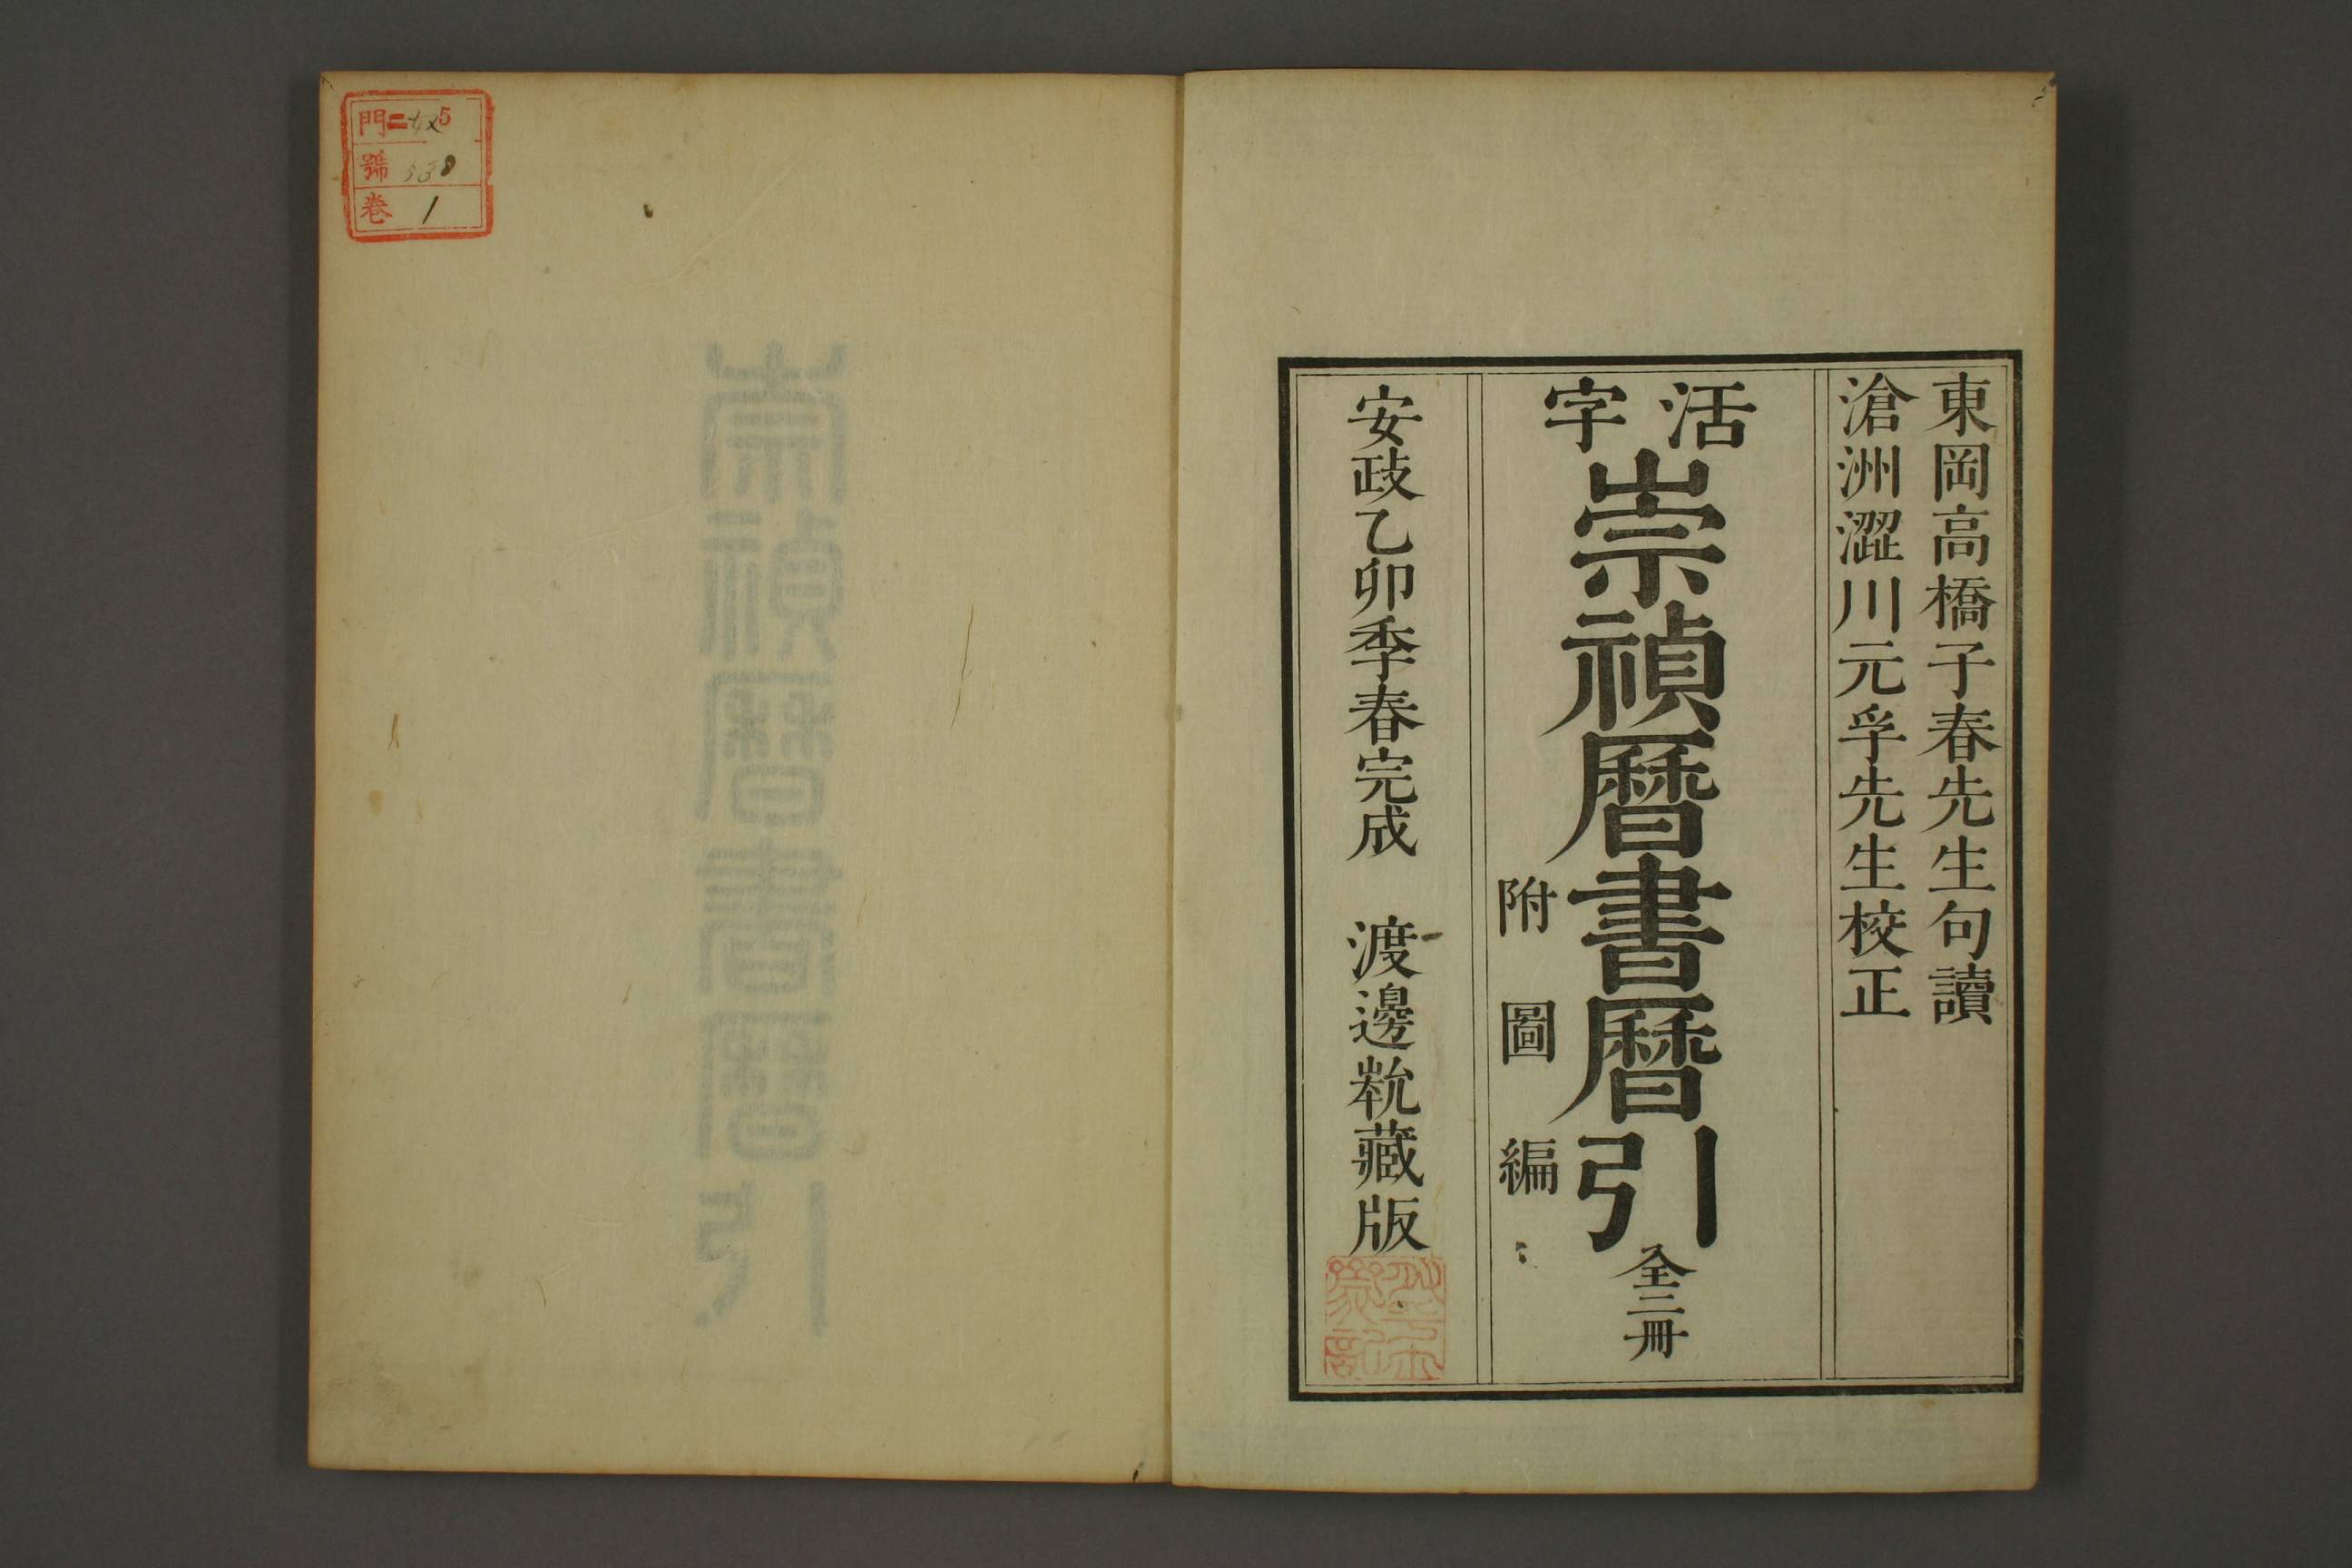 東岡高橋子春先生句讀
滄洲澀川元孚先生校正
活字
崇禎曆書曆引
全二冊
附圖編
安政乙卯季春完成 渡邊藏版
門二 5
號 538
卷 1
崇禎曆書曆引